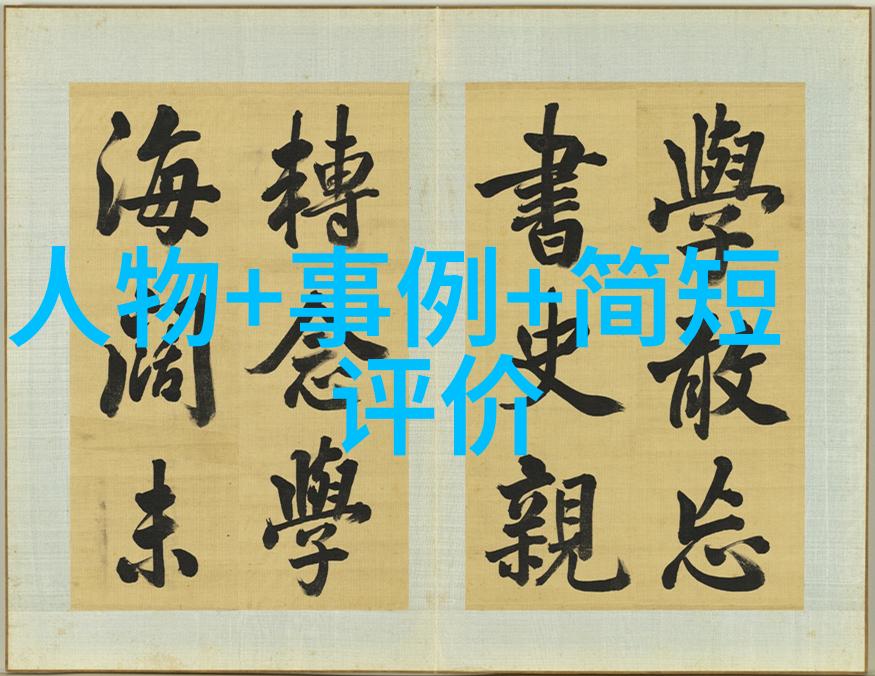 人物+事例+简短
评价
學敢忘
書史親
轉念學
海闊未